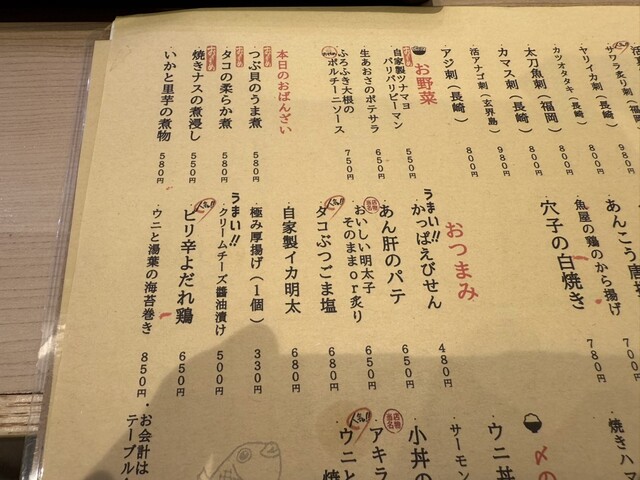 サワラ炙り刺（長崎） 980円
ヤリイカ刺（長崎） 980円
カツオタタキ（長崎） 800円
太刀魚刺（福岡） 800円
カマス刺（長崎） 900円
活アナゴ刺（玄界島） 900円
アジ刺（長崎） 800円
お野菜
おすすめ
自家製ツナマヨ
パリパリピーマン 550円
生あおさのポテサラ 650円
ふろふき大根の
ポルチーニソース 750円
本日のおばんざい
おすすめ
つぶ貝のうま煮 580円
おすすめ
タコの柔らか煮 580円
おすすめ
焼きナスの煮浸し 550円
いかと里芋の煮物 580円
あんこう唐 700
魚屋の鶏のから揚げ 780円
穴子の白焼き
おつまみ
うまい!!
かっぱえびせん 480円
あん肝のパテ 650円
おいしい明太子
そのままor炙り 650円
人気!!
タコぶつごま塩 680円
自家製イカ明太 680円
極み厚揚げ（1個） 330円
うまい!!
クリームチーズ醤油漬け 500円
人気!!
ピリ辛よだれ鶏 650円
ウニと湯葉の海苔巻き 850円
焼きハマ
〆の
ウニ丼
サーモン
小丼の
アキラ
人気!!
ウニと
焼
・お会計は
テーブル